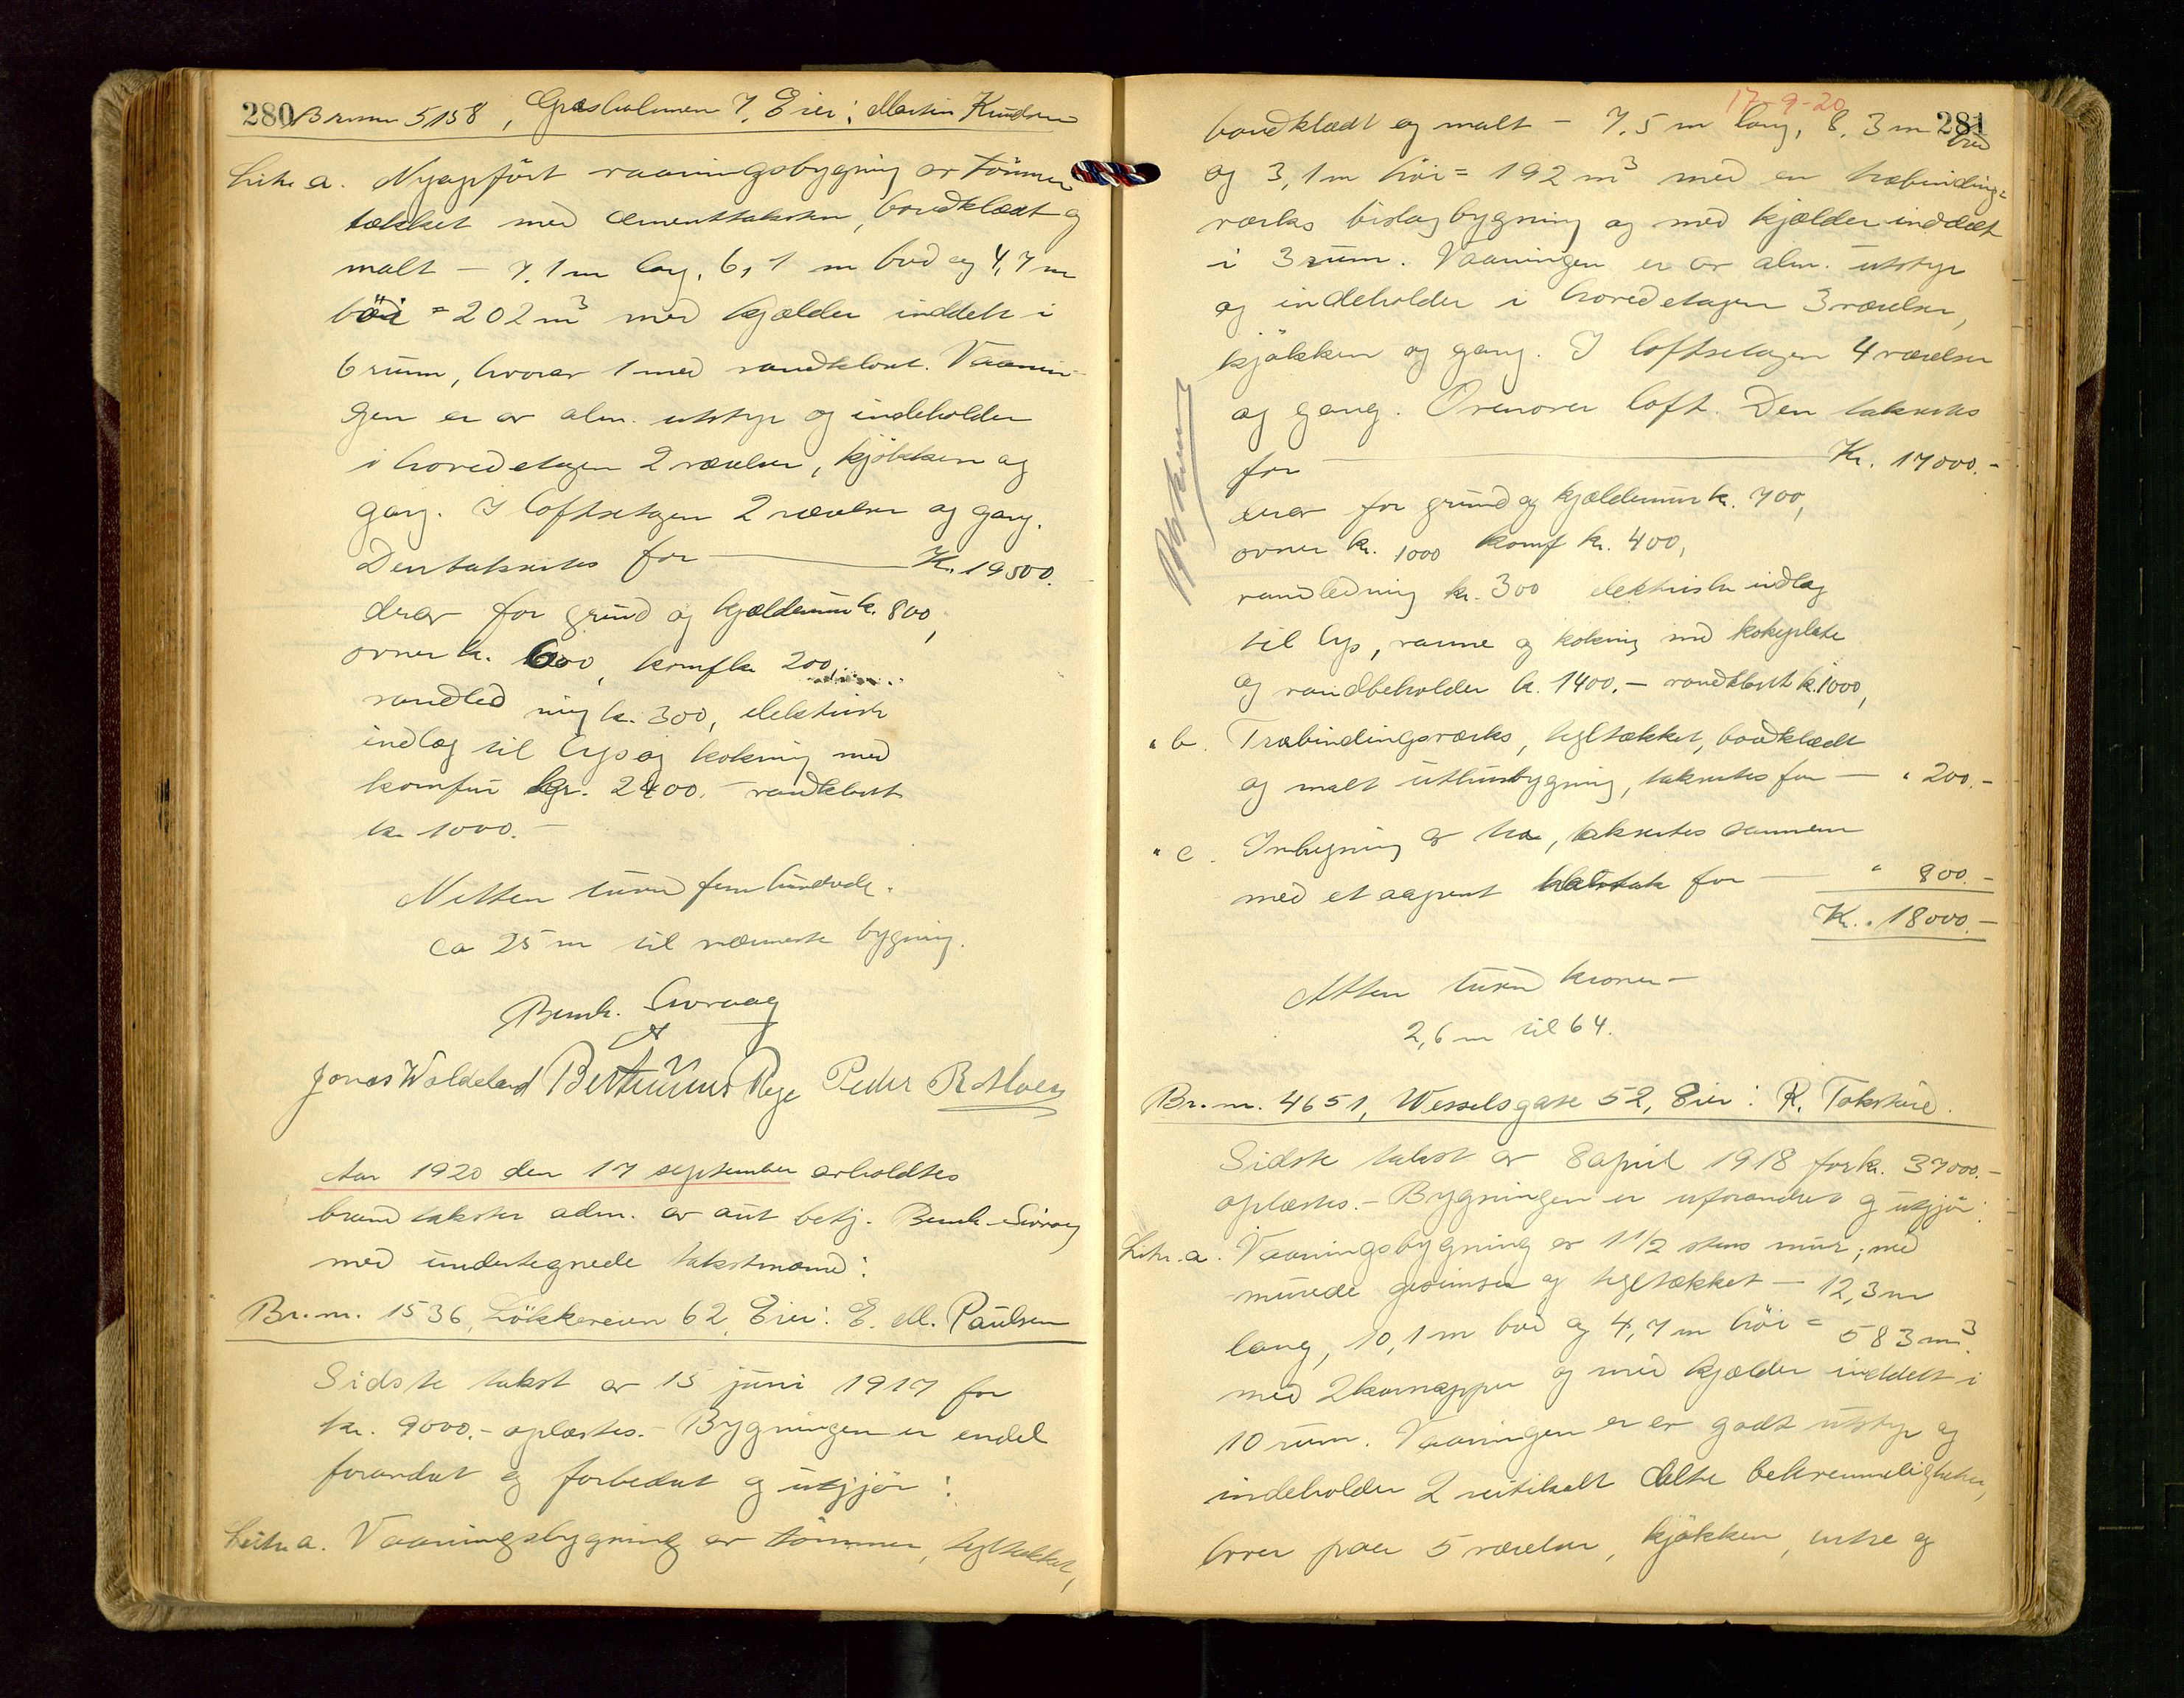 280 Br.nr. 5158, Græsholmen 7, Eier: Martin Knudsen
Litr. a. Nyopført vaaningsbygning av tømmer
tækket med cementtaksten, bordklædt og
malt – 7,1 m lang, 6,1 m bred og 4,7 m
høi = 202 m³ med kjælder inddelt i
6 rum, hvorav 1 med vandklost. Vaanin-
gen er av alm. utstyr og indeholder
i hovedetagen 2 værelser, kjøkken og
gang. I loftsetagen 2 værelser og gang.
Den takseres for — Kr. 19500.
derav for grund og kjældermur kr. 800,
ovner kr. 600, komf kr 200,
vandledning kr. 300, elektrisk
indlæg til lys og kokning med
komfur kr. 2400.– vandklost
kr 1000.–
Nitten tusind fem hundrede.
ca 25 m til nærmeste bygning.
Bernh. Sivraag
Jonas Waldeland Bertinius Rege Peder R Moen
Aar 1920 den 17 september avholdtes
brandtakster adm. av aut betj. Bernh. Sivraag
med undertegnede takstmænd:
Br.nr. 1536, Løkkeveien 62, Eier: E. M. Paulsen
Sidste takst av 15 juni 1917 for
kr. 9000.– oplæstes.– Bygningen er endel
forandret og forbedret og utgjør:
Litr. a. Vaaningsbygning av tømmer, tegltækket,
17-9-20
281
bordklædt og malt – 7,5 m lang, 8,3 m bred
og 3,1 m høi = 192 m³ med en træbindings-
værks bislagbygning og med kjælder inddelt
i 3 rum. Vaaningen er av alm. utstyr
og indeholder i hovedetagen 3 værelser,
kjøkken og gang. I loftsetagen 4 værelser
og gang. Ovenover loft. Den takseres
for — Kr. 17000.–
derav for grund og kjældermur kr. 700,
ovner kr. 1000 komf kr. 400,
vandledning kr. 300 elektriske indlæg
til lys, varme og kokning med kokeplate
og vandbeholder kr. 1400.– vandklost kr. 1000,
" b. Træbindingsværks, tegltækket, bordklædt
og malt uthusbygning, takseres for — " 200.–
" c. Inbygning av træ, takseres sammen
med et aapent halvtak for — " 800.–
Kr. 18000.–
Atten tusind kroner –
2,6 m til 64.
Br.nr. 4651, Wesselsgate 52, Eier: R. Tokstvid.
Sidste takst av 8 april 1918 for kr. 37000.–
oplæstes.– Bygningen er uforandret og utgjør:
Litr. a. Vaaningsbygning av 1 1/2 stens mur, med
murede gesimser og tegltækket – 12,3 m
lang, 10,1 m bred og 4,7 m høi = 583 m³.
med 2 karnapper og med kjælder inddelt i
10 rum. Vaaningen er av godt utstyr og
indeholder 2 vertikalt delte bekvemmeligheter,
hver paa 5 værelser, kjøkken, entre og